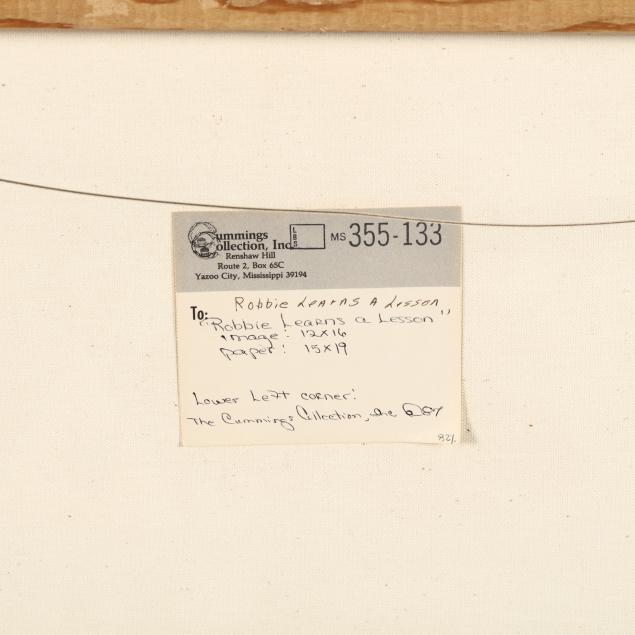 Cummings
Collection, Inc.
Renshaw Hill
Route 2, Box 65C
Yazoo City, Mississippi 39194
LBS
MS 355-133
To: Robbie Learns A Lesson
"Robbie Learns a Lesson"
image: 12x16
paper: 15x19
Lower Left corner:
The Cummings Collection, Inc